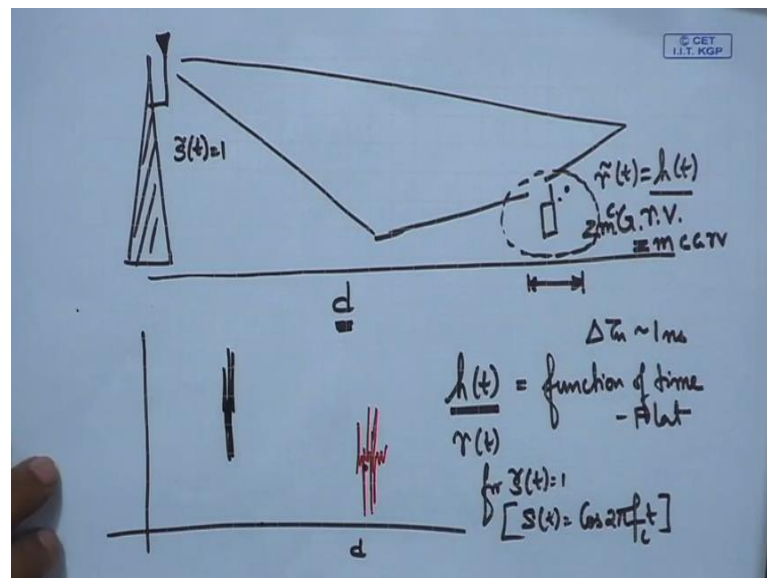 © CET
I.I.T. KGP
s̃(t)=1
r̃(t)=h(t)
ZmCG.r.V.
ZMCGRV
d
Δτn ~ 1ns
h(t) = function of time
- Flat
r(t)
for s̃(t)=1
[S(t) = Cos2πfct]
d